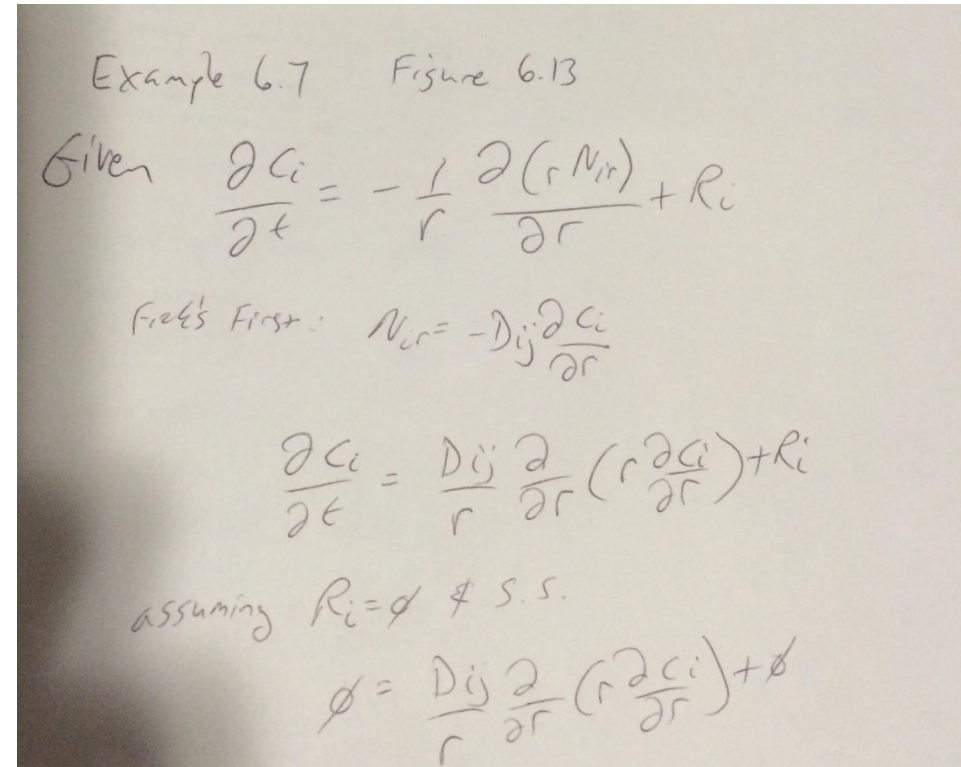 Example 6.7 Figure 6.13
Given ∂Ci/∂t = - 1/r ∂(r Nir)/∂r + Ri
Fick's First: Nir = -Dij ∂Ci/∂r
∂Ci/∂t = Dij/r ∂/∂r (r ∂Ci/∂r) + Ri
assuming Ri = ∅ & S.S.
∅ = Dij/r ∂/∂r (r ∂Ci/∂r) + ∅